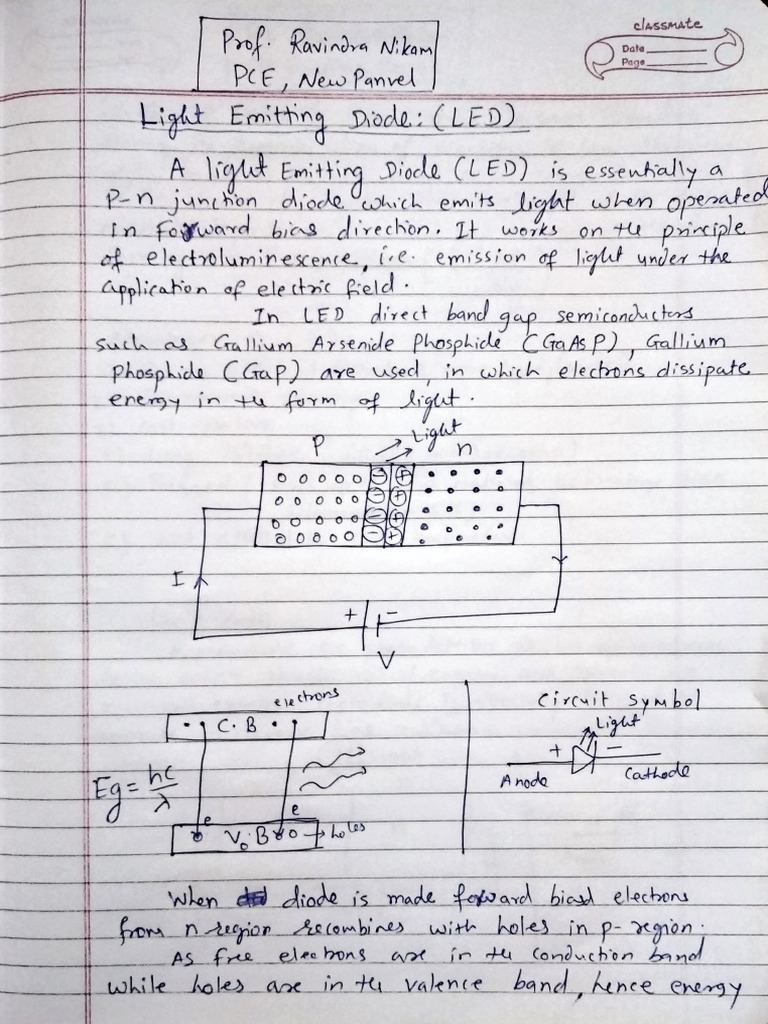 Prof. Ravindra Nikam
PCE, New Panvel
classmate
Date
Page
Light Emitting Diode: (LED)
A light Emitting Diode (LED) is essentially a
P-n junction diode which emits light when operated
in forward bias direction. It works on the principle
of electroluminescence, i.e. emission of light under the
application of electric field.
In LED direct band gap semiconductors
such as Gallium Arsenide Phosphide (GaAsP), Gallium
Phosphide (GaP) are used, in which electrons dissipate
energy in the form of light.
P Light n
I
+ -
V
electrons
C.B
Eg = hc/λ
e e
V.B holes
Circuit symbol
Light
+ -
Anode Cathode
When diode is made forward biasd electrons
from n-region recombines with holes in p-region.
As free electrons are in the conduction band
while holes are in the valence band, hence energy